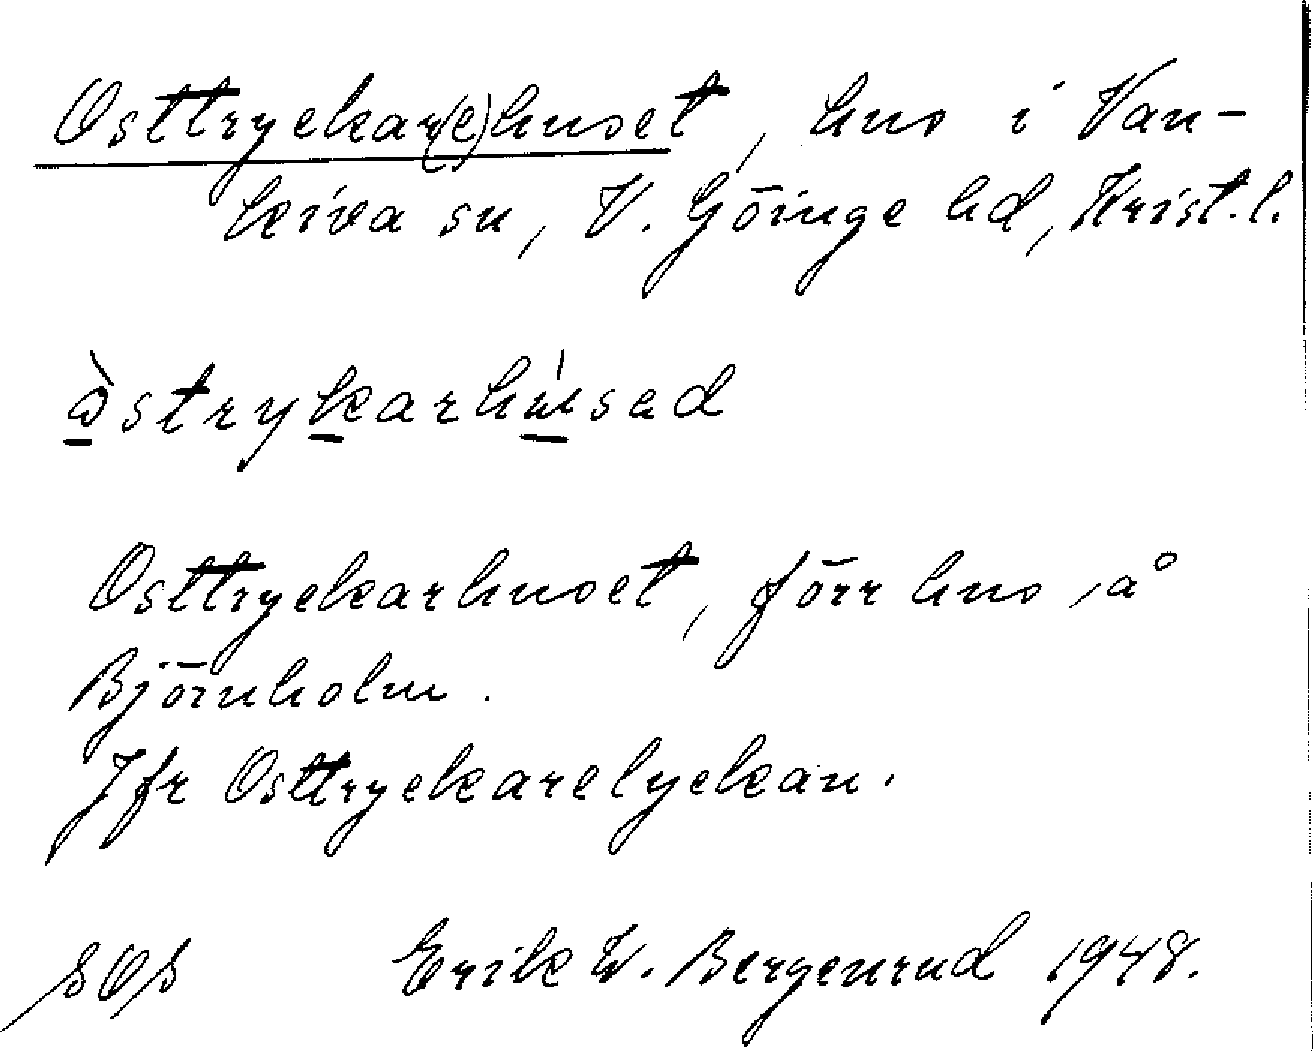 Osttryckar(e)huset, hus i Van-
kiva sn, V. Göinge hd, Krist. l.
ɷ̀strykarhúsed
Osttryckarhuset, förr hus å
Björnholm.
Jfr Osttryckarelyckan.
SOS Erik W. Bergenrud 1948.